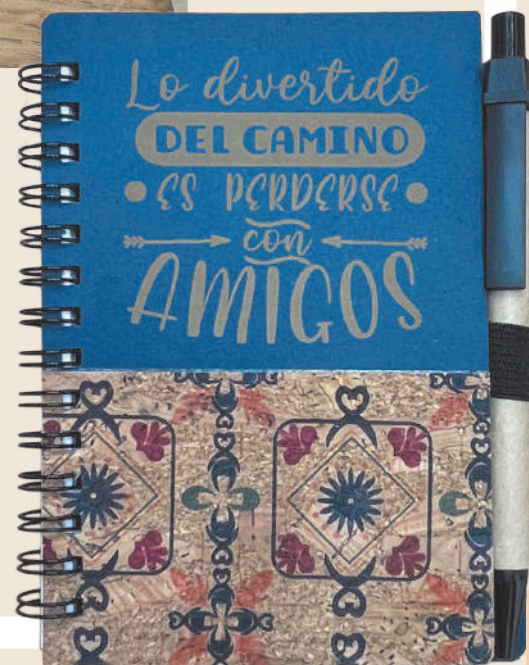 Lo divertido
DEL CAMINO
ES PERDERSE
con
AMIGOS